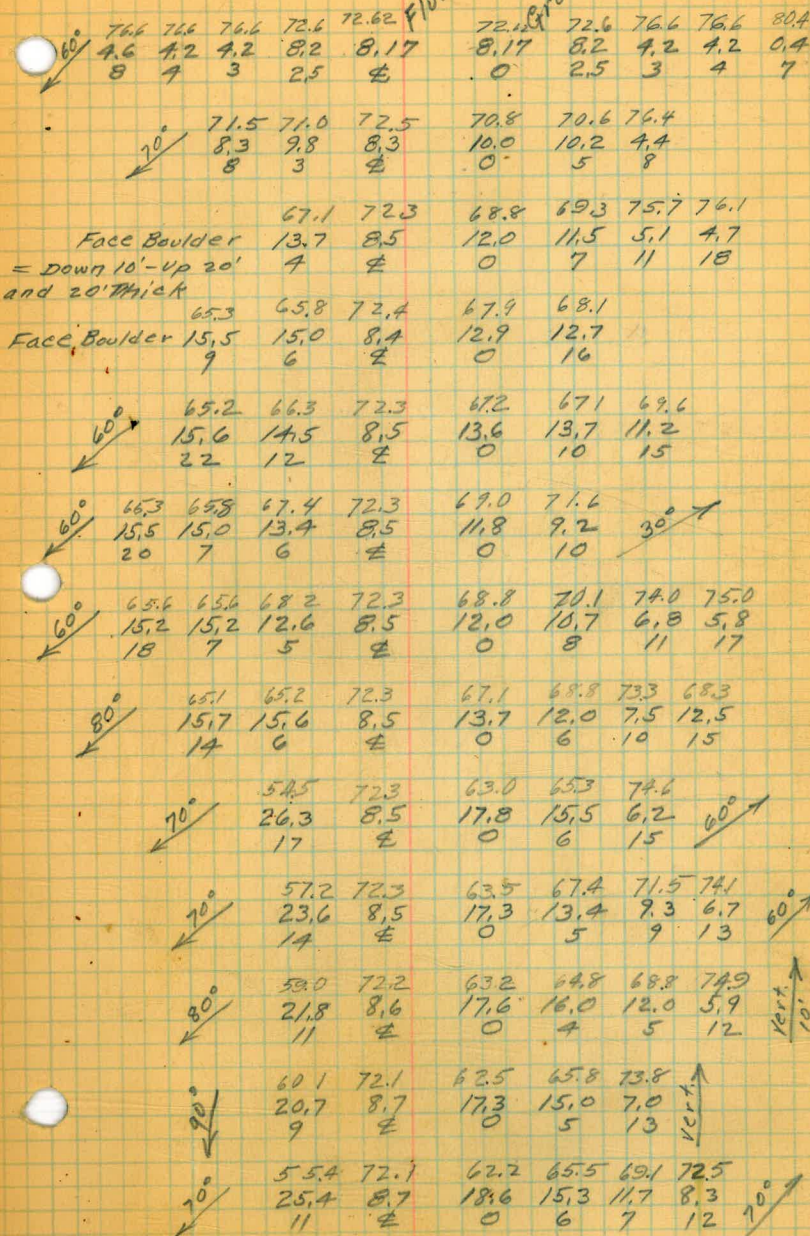 Flo
Gr
76.6 76.6 76.6 72.6 72.62 72.6 76.6 76.6 80.4
60° 4.6 4.2 4.2 8.2 8.17 8.17 8.2 4.2 4.2 0.4
8 4 3 2.5 ℄ 0 2.5 3 4 7
71.5 71.0 72.5 70.8 70.6 76.4
70° 8.3 9.8 8.3 10.0 10.2 4.4
8 3 ℄ 0 5 8
67.1 72.3 68.8 69.3 75.7 76.1
Face Boulder 13.7 8.5 12.0 11.5 5.1 4.7
= Down 10'-Up 20' 4 ℄ 0 7 11 18
and 20' Thick
65.3 65.8 72.4 67.9 68.1
Face Boulder 15.5 15.0 8.4 12.9 12.7
9 6 ℄ 0 16
65.2 66.3 72.3 67.2 67.1 69.6
60° 15.6 14.5 8.5 13.6 13.7 11.2
22 12 ℄ 0 10 15
65.3 65.8 67.4 72.3 69.0 71.6
60° 15.5 15.0 13.4 8.5 11.8 9.2 30°
20 7 6 ℄ 0 10
65.6 65.6 68.2 72.3 68.8 70.1 74.0 75.0
60° 15.2 15.2 12.6 8.5 12.0 10.7 6.8 5.8
18 7 5 ℄ 0 8 11 17
65.1 65.2 72.3 67.1 68.8 73.3 68.3
80° 15.7 15.6 8.5 13.7 12.0 7.5 12.5
14 6 ℄ 0 6 10 15
54.5 72.3 63.0 65.3 74.6
70° 26.3 8.5 17.8 15.5 6.2 60°
17 ℄ 0 6 15
57.2 72.3 63.5 67.4 71.5 74.1
70° 23.6 8.5 17.3 13.4 9.3 6.7 60°
14 ℄ 0 5 9 13
59.0 72.2 63.2 64.8 68.8 74.9
80° 21.8 8.6 17.6 16.0 12.0 5.9 Vert. 10'
11 ℄ 0 4 5 12
60.1 72.1 62.5 65.8 73.8
90° 20.7 8.7 17.3 15.0 7.0 Vert.
9 ℄ 0 5 13
55.4 72.1 62.2 65.5 69.1 72.5
70° 25.4 8.7 18.6 15.3 11.7 8.3 70°
11 ℄ 0 6 7 12